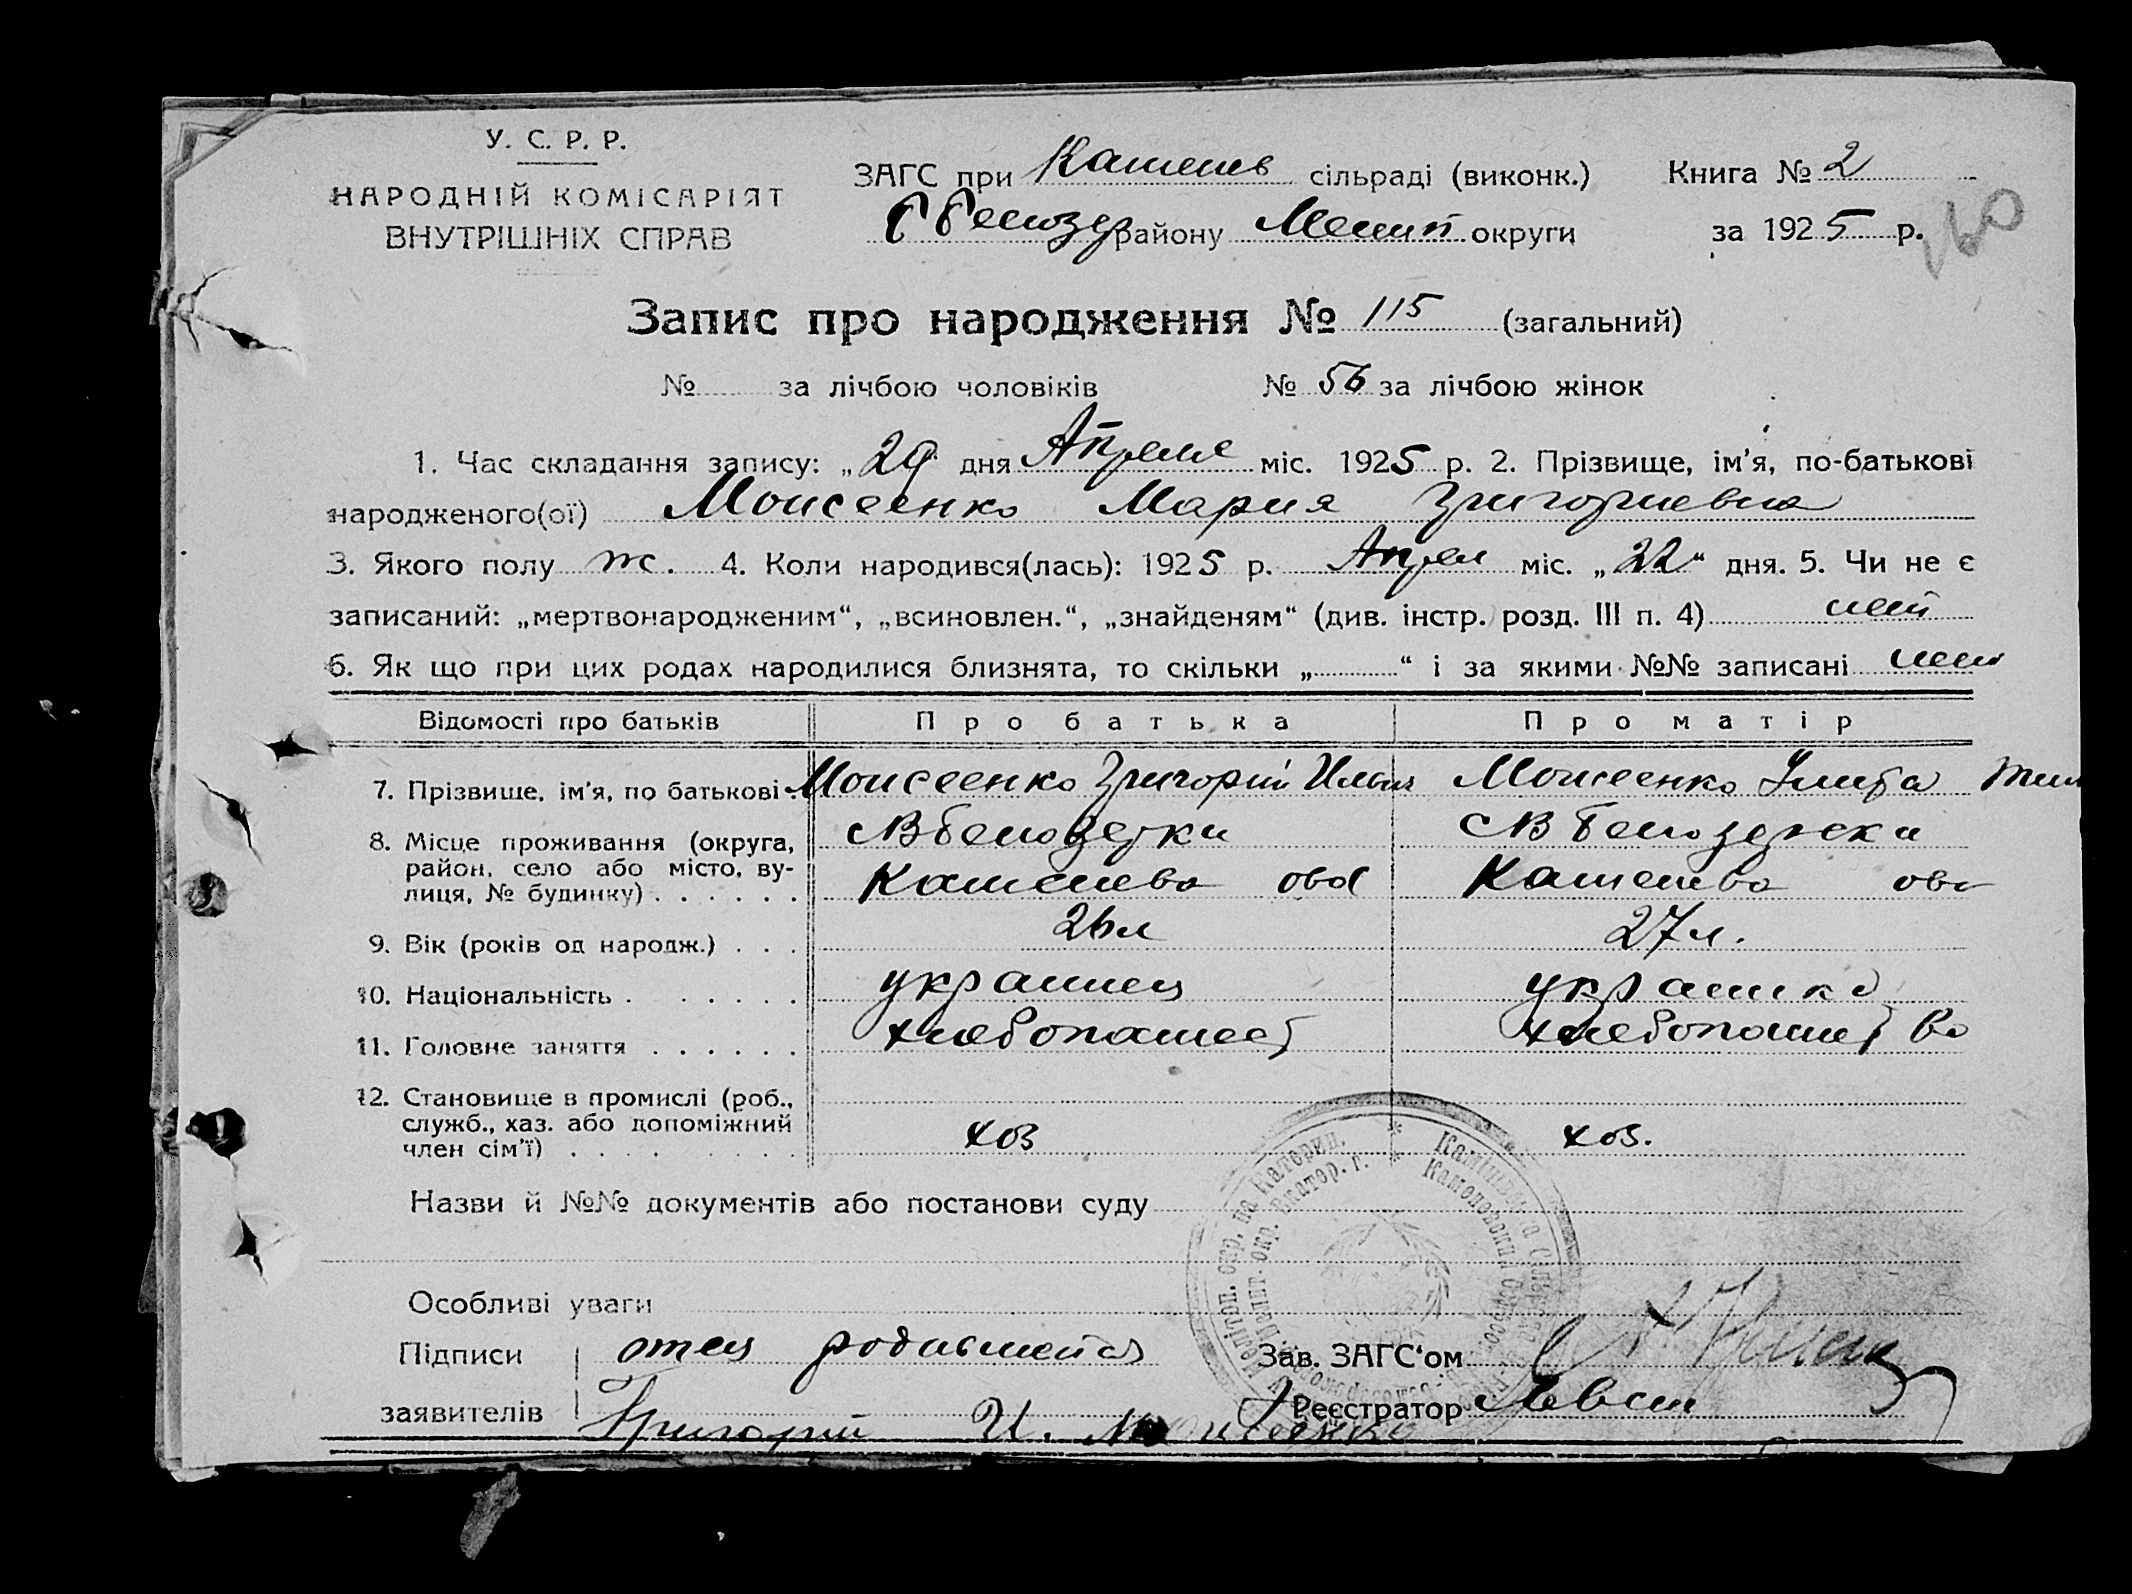 У. С. Р. Р.
НАРОДНІЙ КОМІСАРІЯТ
ВНУТРІШНІХ СПРАВ
ЗАГС при Каменев сільраді (виконк.) Книга № 2
району Мелит округи за 1925 р.
160
Запис про народження № 115 (загальний)
№ за лічбою чоловіків № 56 за лічбою жінок
1. Час складання запису: „29 дня Апреля міс. 1925 р. 2. Прізвище, ім'я, по-батькові
народженого(ої) Моисеенко Мария Григориевна
3. Якого полу ж. 4. Коли народився(лась): 1925 р. Апрел міс. „22“ дня. 5. Чи не є
записаний: „мертвонародженим“, „всиновлен.“, „знайденям“ (див. інстр. розд. III п. 4) нет
6. Як що при цих родах народилися близнята, то скільки „ “ і за якими №№ записані нет
Відомості про батьків Про батька Про матір
7. Прізвище, ім'я, по батькові Моисеенко Григорий Ильич Моисеенко
8. Місце проживання (округа, район, село або місто, вулиця, № будинку) . . . . . .
СВ белозерки СВ белозерски
Каменева Каменева
9. Вік (років од народж.) . . . 26 л 27 л.
10. Національність . . . . . . . украинец украинка
11. Головне заняття . . . . . . хлебопашест хлебопашество
12. Становище в промислі (роб., служб., хаз. або допоміжний член сім'ї) . . . . . . . хоз хоз.
Назви й №№ документів або постанови суду
Особливі уваги
Підписи отец родившейся Зав. ЗАГС'ом
заявителів Григорий И. Моисеенко Реєстратор